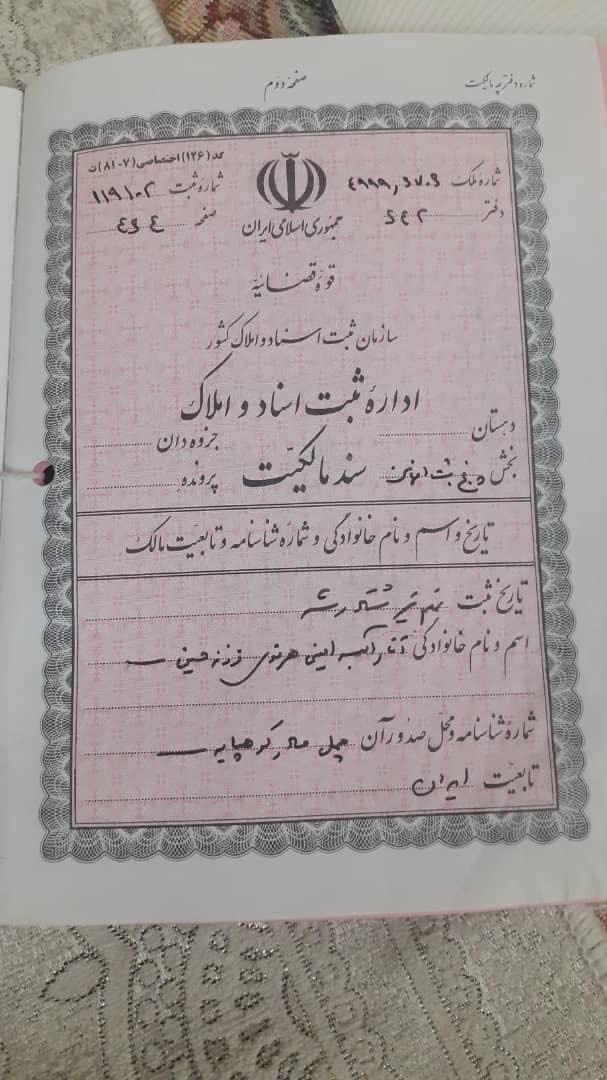 شماره دفترچه مالکیت
صفحهٔ دوم
کد (۱۲۶) اختصاصی (۷-۸۱) ت
شمارهٔ ملک
شمارهٔ ثبت ۱۱۹۱۰۲
دفتر ۶۴۲
صفحه
جمهوری اسلامی ایران
قوهٔ قضائیه
سازمان ثبت اسناد و املاک کشور
ادارهٔ ثبت اسناد و املاک
دهستان
جزوه‌دان
بخش
سند مالکیت
پرونده
تاریخ و اسم و نام خانوادگی و شمارهٔ شناسنامه و تابعیت مالک
تاریخ ثبت
اسم و نام خانوادگی آقای امینی هرندی فرزند حسین
شمارهٔ شناسنامه و محل صدور آن چهل صادره کوهپایه
تابعیت ایران